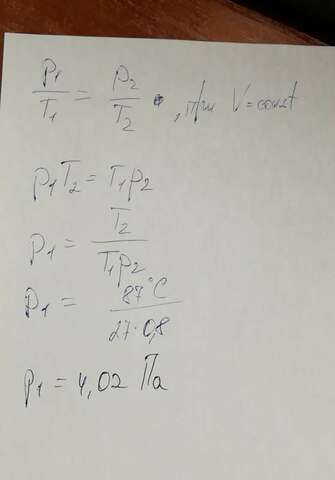 p₁/T₁ = p₂/T₂, при V=const
p₁T₂ = T₁p₂
p₁ = T₂/T₁p₂
p₁ = 87°C/27·0,8
p₁ = 4,02 Па